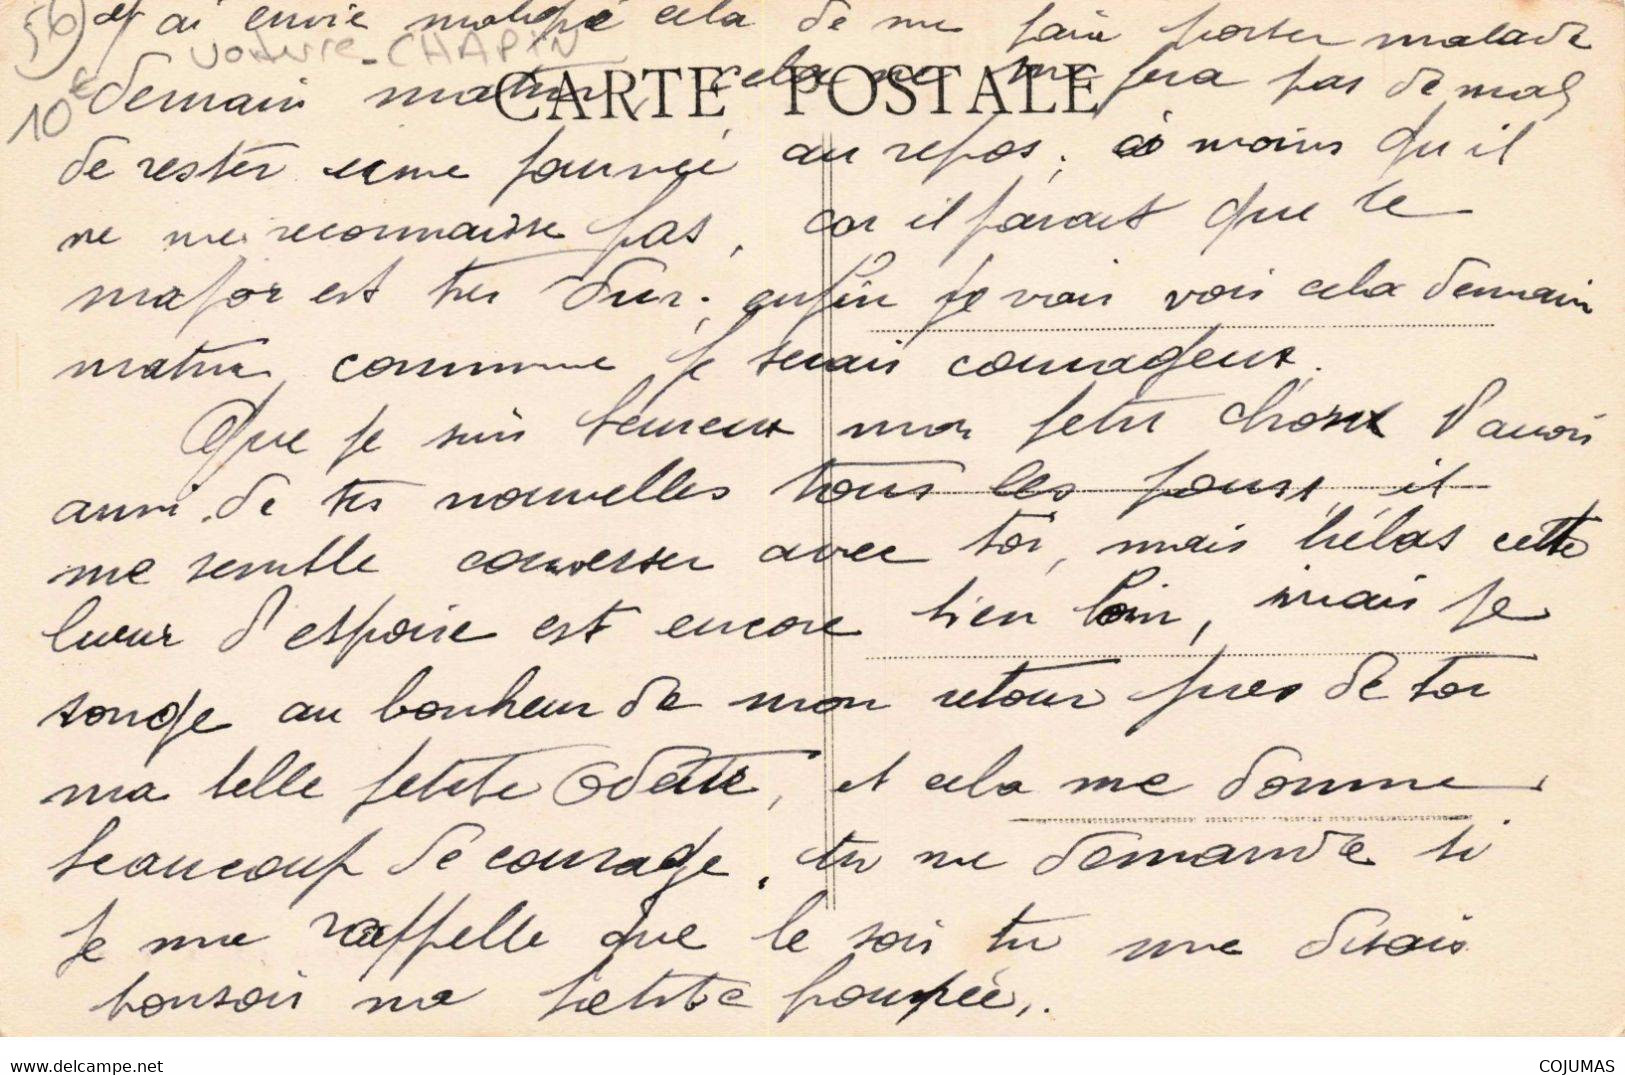 56) et j'ai envie malgré cela de me faire porter malade
voiture - CHAPIN
10€
CARTE POSTALE
demain matin, cela ne me fera pas de mal
de rester une journée au repos, à moins qu'il
ne me reconnaisse pas, car il parait que le
major est très dur, enfin je vais voir cela demain
matin comme je serais courageux.
Que je suis heureux mon petit chou d'avoir
aussi de tes nouvelles tous les jours, il
me semble converser avec toi, mais hélas cette
lueur d'espoir est encore bien loin, mais je
songe au bonheur de mon retour près de toi
ma belle petite Odette, et cela me donne
beaucoup de courage, tu me demande si
je me rappelle que le soir tu me disais
bonsoir ma petite poupée,.
Delcampe.net
COJUMAS